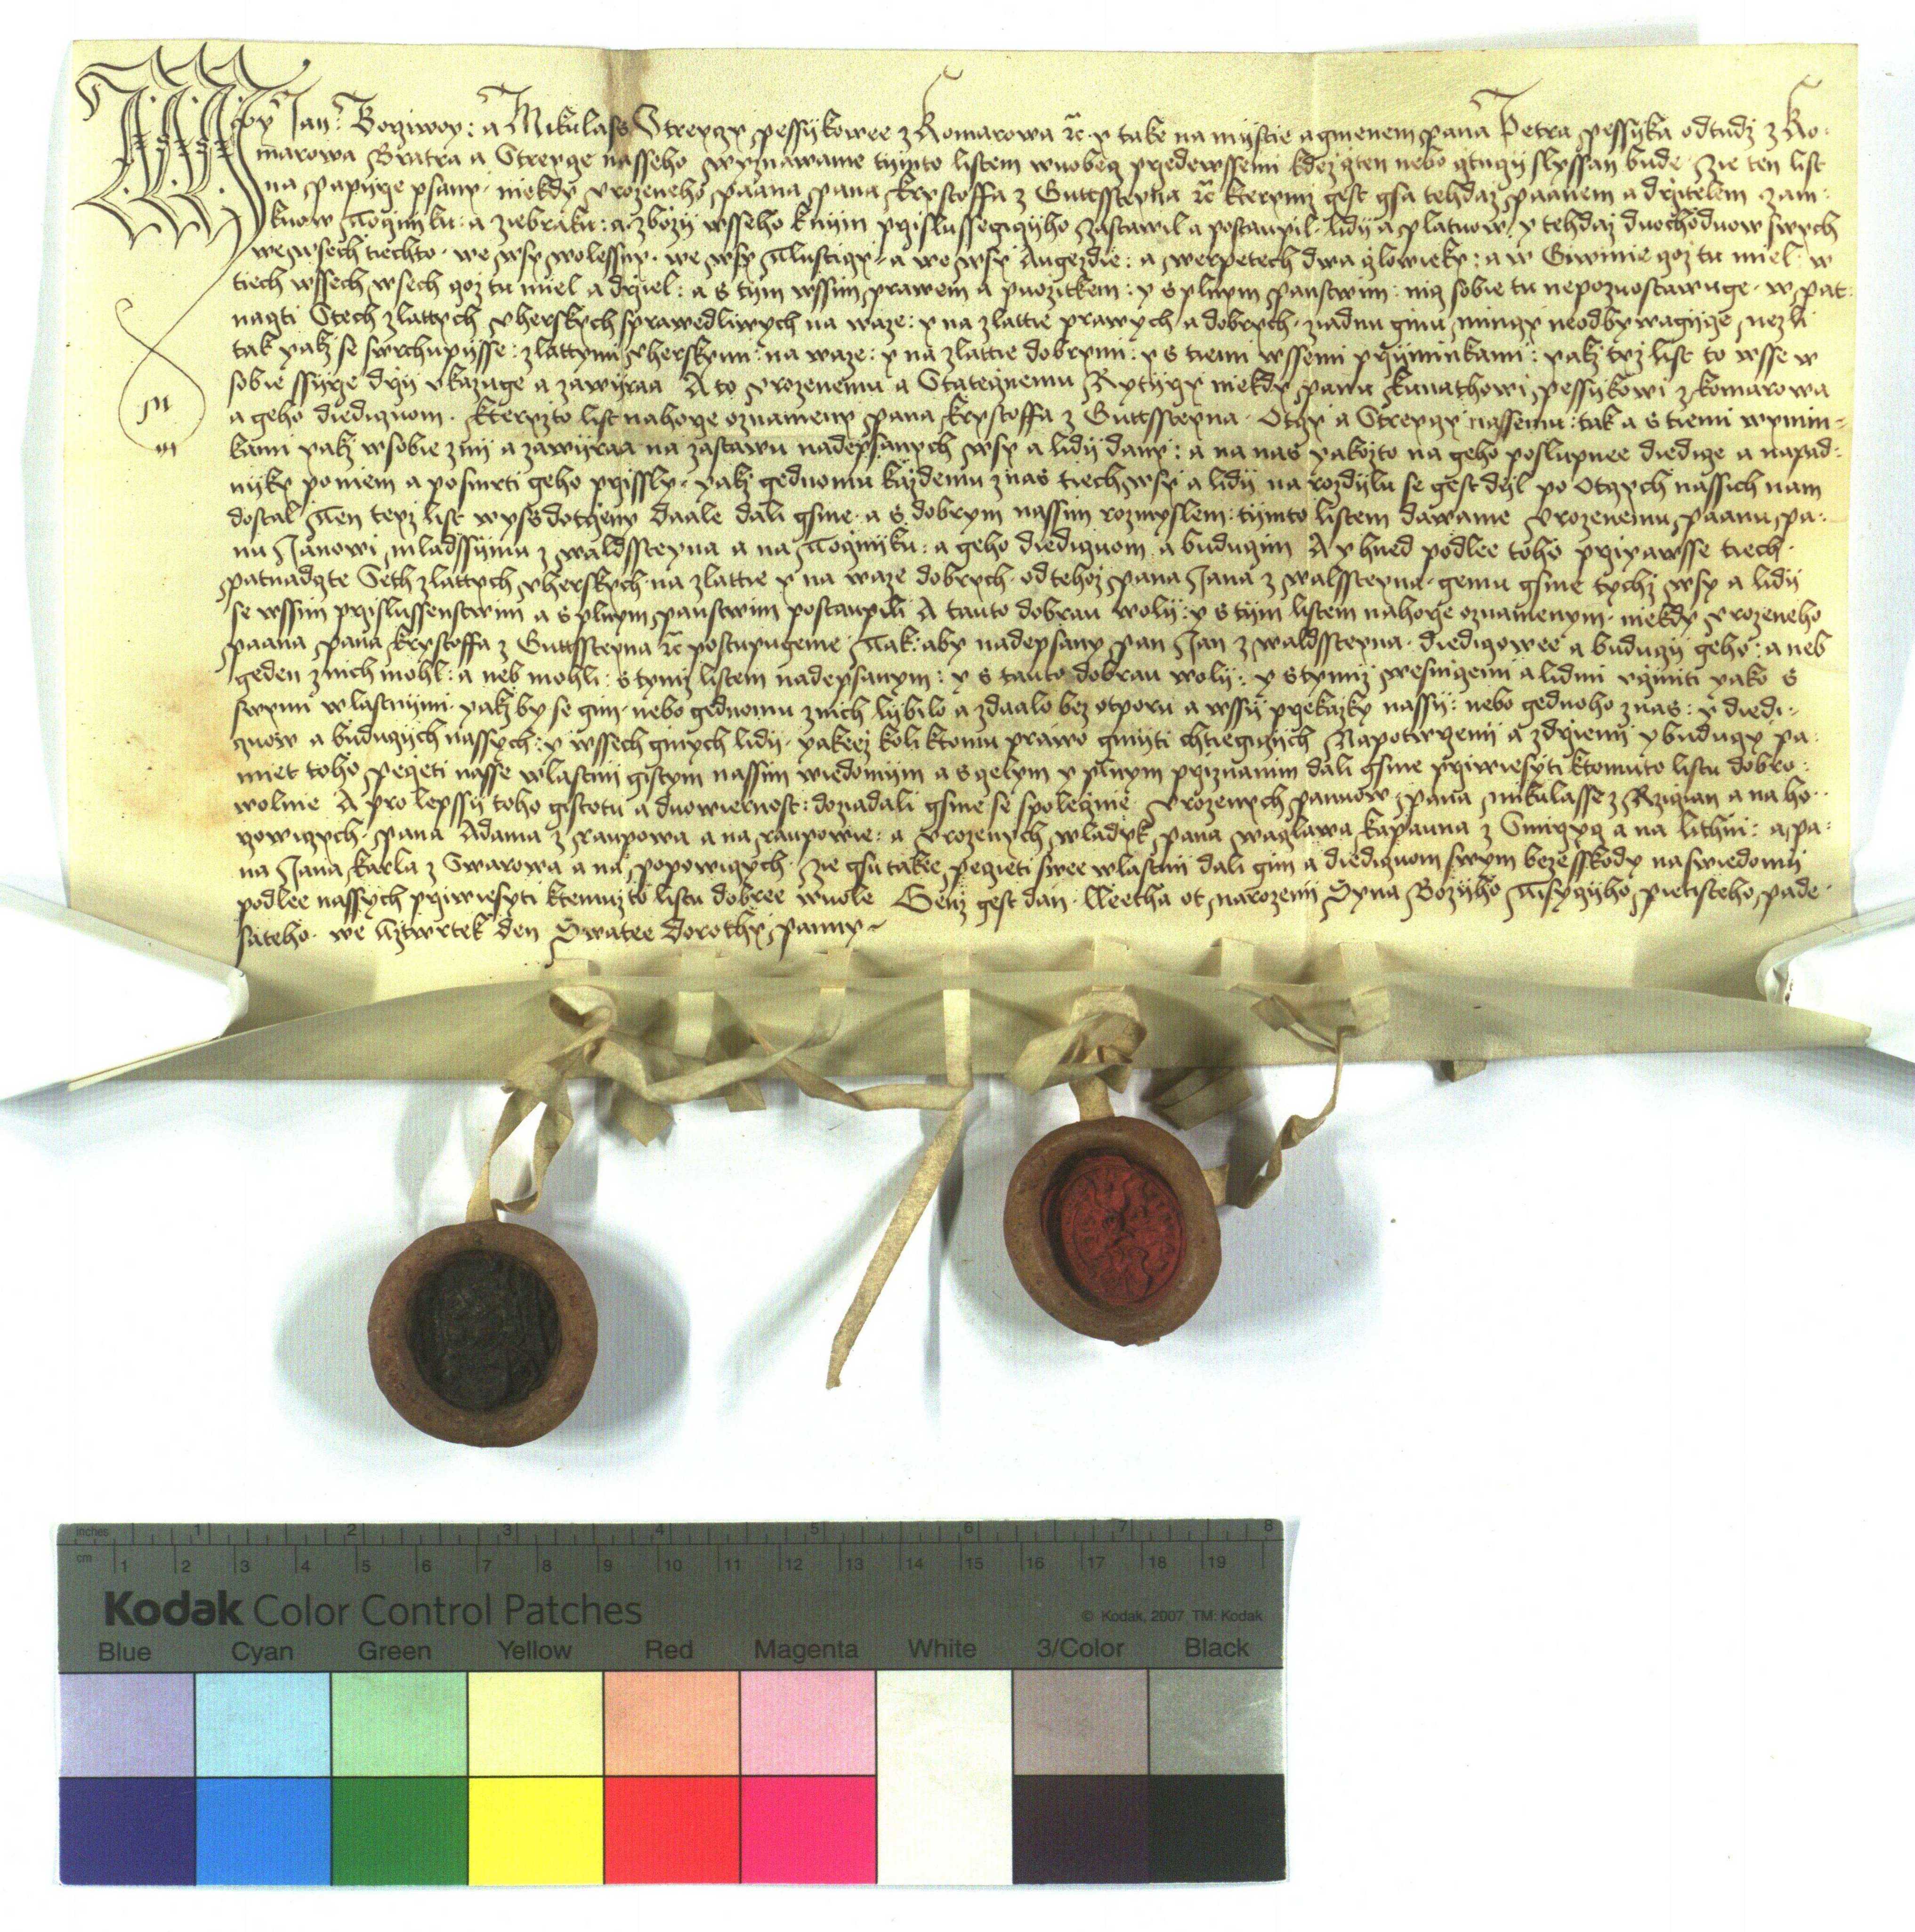 My Jan: Borziwoy: a Mikulass Streyczy pessykowee z Komarowa rc y take na myste a gmenem pana Petra pessyka odtudz z Ko-
marowa Bratra a Streycze nasseho wyznawame tymto listem wuobecz przedewssemi kdez czten nebo cztuczy slyssan bude. Zie ten list
na papyrze psany. niekdy vrozeneho paana pana krystoffa z Guttssteyna rc kterymz gest gsa tehdaz paanem a drzitelem zam-
kuow Toczniku: a ziebraku: a zbozy wsseho knym przislussegiczyho zastawil a postaupil. lidy a platuow. y tehdaz duochoduow swych
we wsech tiechto. we wsy wolessny. we wsy Tlusticzy. a we wsy Augezdie: a werpetech dwa czlowieky: a w Giwinie coz tu miel. w
tiech wssech wsech coz tu miel a drziel: a s tym wssim prawem a puozitkem: y s plnym panstwim: nicz sobie tu nepozuostawuge. w pat-
naczti Stech zlattych vherskych sprawedliwych na waze: y na zlattie prawych a dobrych. ziadnu ginu minczy neodbywagicze nezli
tak yakz se swrchupysse: zlattymi vherskymi: na waze: y na zlattie dobrymi: y s tiemi wssemi przyminkami: yakz tyz list to wsse w
sobie ssyrze drzy vkazuge a zawyraa A to vrozenemu a Statecznemu Rytyrzy niekdy panu kunathowi pessykowi z komarowa
a geho diediczuom. kteryzto list nahorze oznameny pana krystoffa z Guttssteyna. Otczy a Streyczy nassemu: tak a s tiemi wymin-
kami yakz wsobie zny a zawyraa na zastawu nadepsanych wsy a lidy dany: a na nas yakozto na geho poslupnee diedicze a napad-
nyky poniem a posmrti geho przissly. yakz gednomu kazdemu znas tiech wsy a lidy na rozdylu se gest dyl po Otczych nassich nam
dostal Ten teyz list wyss dotczeny daale dali gsme. a s dobrym nassim rozmyslem: tymto listem dawame vrozenemu paanu pa-
nu Janowi mladssymu z waldssteyna a na Toczniku: a geho diediczuom a buduczim A y hned podlee toho przigawsse tiech
patnadczte Seth zlattych vherskych na zlattie y na waze dobrych. odtehoz pana Jana z walssteyna. gemu gsme tychz wsy a lidy
se wssim przislussenstwim a s plnym panstwim postaupili A tauto dobrau woly: y s tym listem nahorze oznamenym. niekdy vrozeneho
paana pana krystoffa z Guttssteyna rc postupugeme Tak: aby nadepsany pan Jan z waldssteyna. diediczowee a buduczy geho: a neb
geden znich mohl: a neb mohli: s tymz listem nadepsanym: y s tauto dobrau woly: y s tymiz wesniczemi a lidmi vcziniti yako s
swymi wlastnymi. yakz by se gim. nebo gednomu znich lybilo a zdaalo bez otporu a wssy przekazky nassy: nebo gednoho znas: y diedi-
czuow a buduczych nassych: y wssech ginych lidy. yakeez koli ktomu prawo gmyti chtiegiczych Napotwrzeny a zdrzieny y buduczy pa-
miet toho. peczeti nasse wlastny gistym nassim wiedomym a s czelym y plnym prziznanim dali gsme prziwiesyti ktomuto listu dobro-
wolnie A pro lepssy toho gistotu a duowiernost: dozadali gsme se spoleczne vrozenych panuow pana mikulasse z Rziczan a na ho-
rzowiczych. pana Adama z raupowa a na raupowie: a vrozenych wladyk pana waczlawa kapauna z Smirzycz a na lithni: a pa-
na Jana karla z Swarowa a na popowiczych. Zie gsu takee peczeti swee wlastny dali gim a diediczuom swym bezesskody na swiedomy
podlee nassych prziwiesyti ktemuz to listu dobree wuole Genz gest dan. Leetha ot narozeny Syna Bozyho Tisyczyho pietisteho pade-
sateho. we cztwrtek den Swatee dorothy panny
inches 1 2 3 4 5 6 7 8
cm 1 2 3 4 5 6 7 8 9 10 11 12 13 14 15 16 17 18 19
Kodak Color Control Patches
© Kodak, 2007 TM: Kodak
Blue Cyan Green Yellow Red Magenta White 3/Color Black